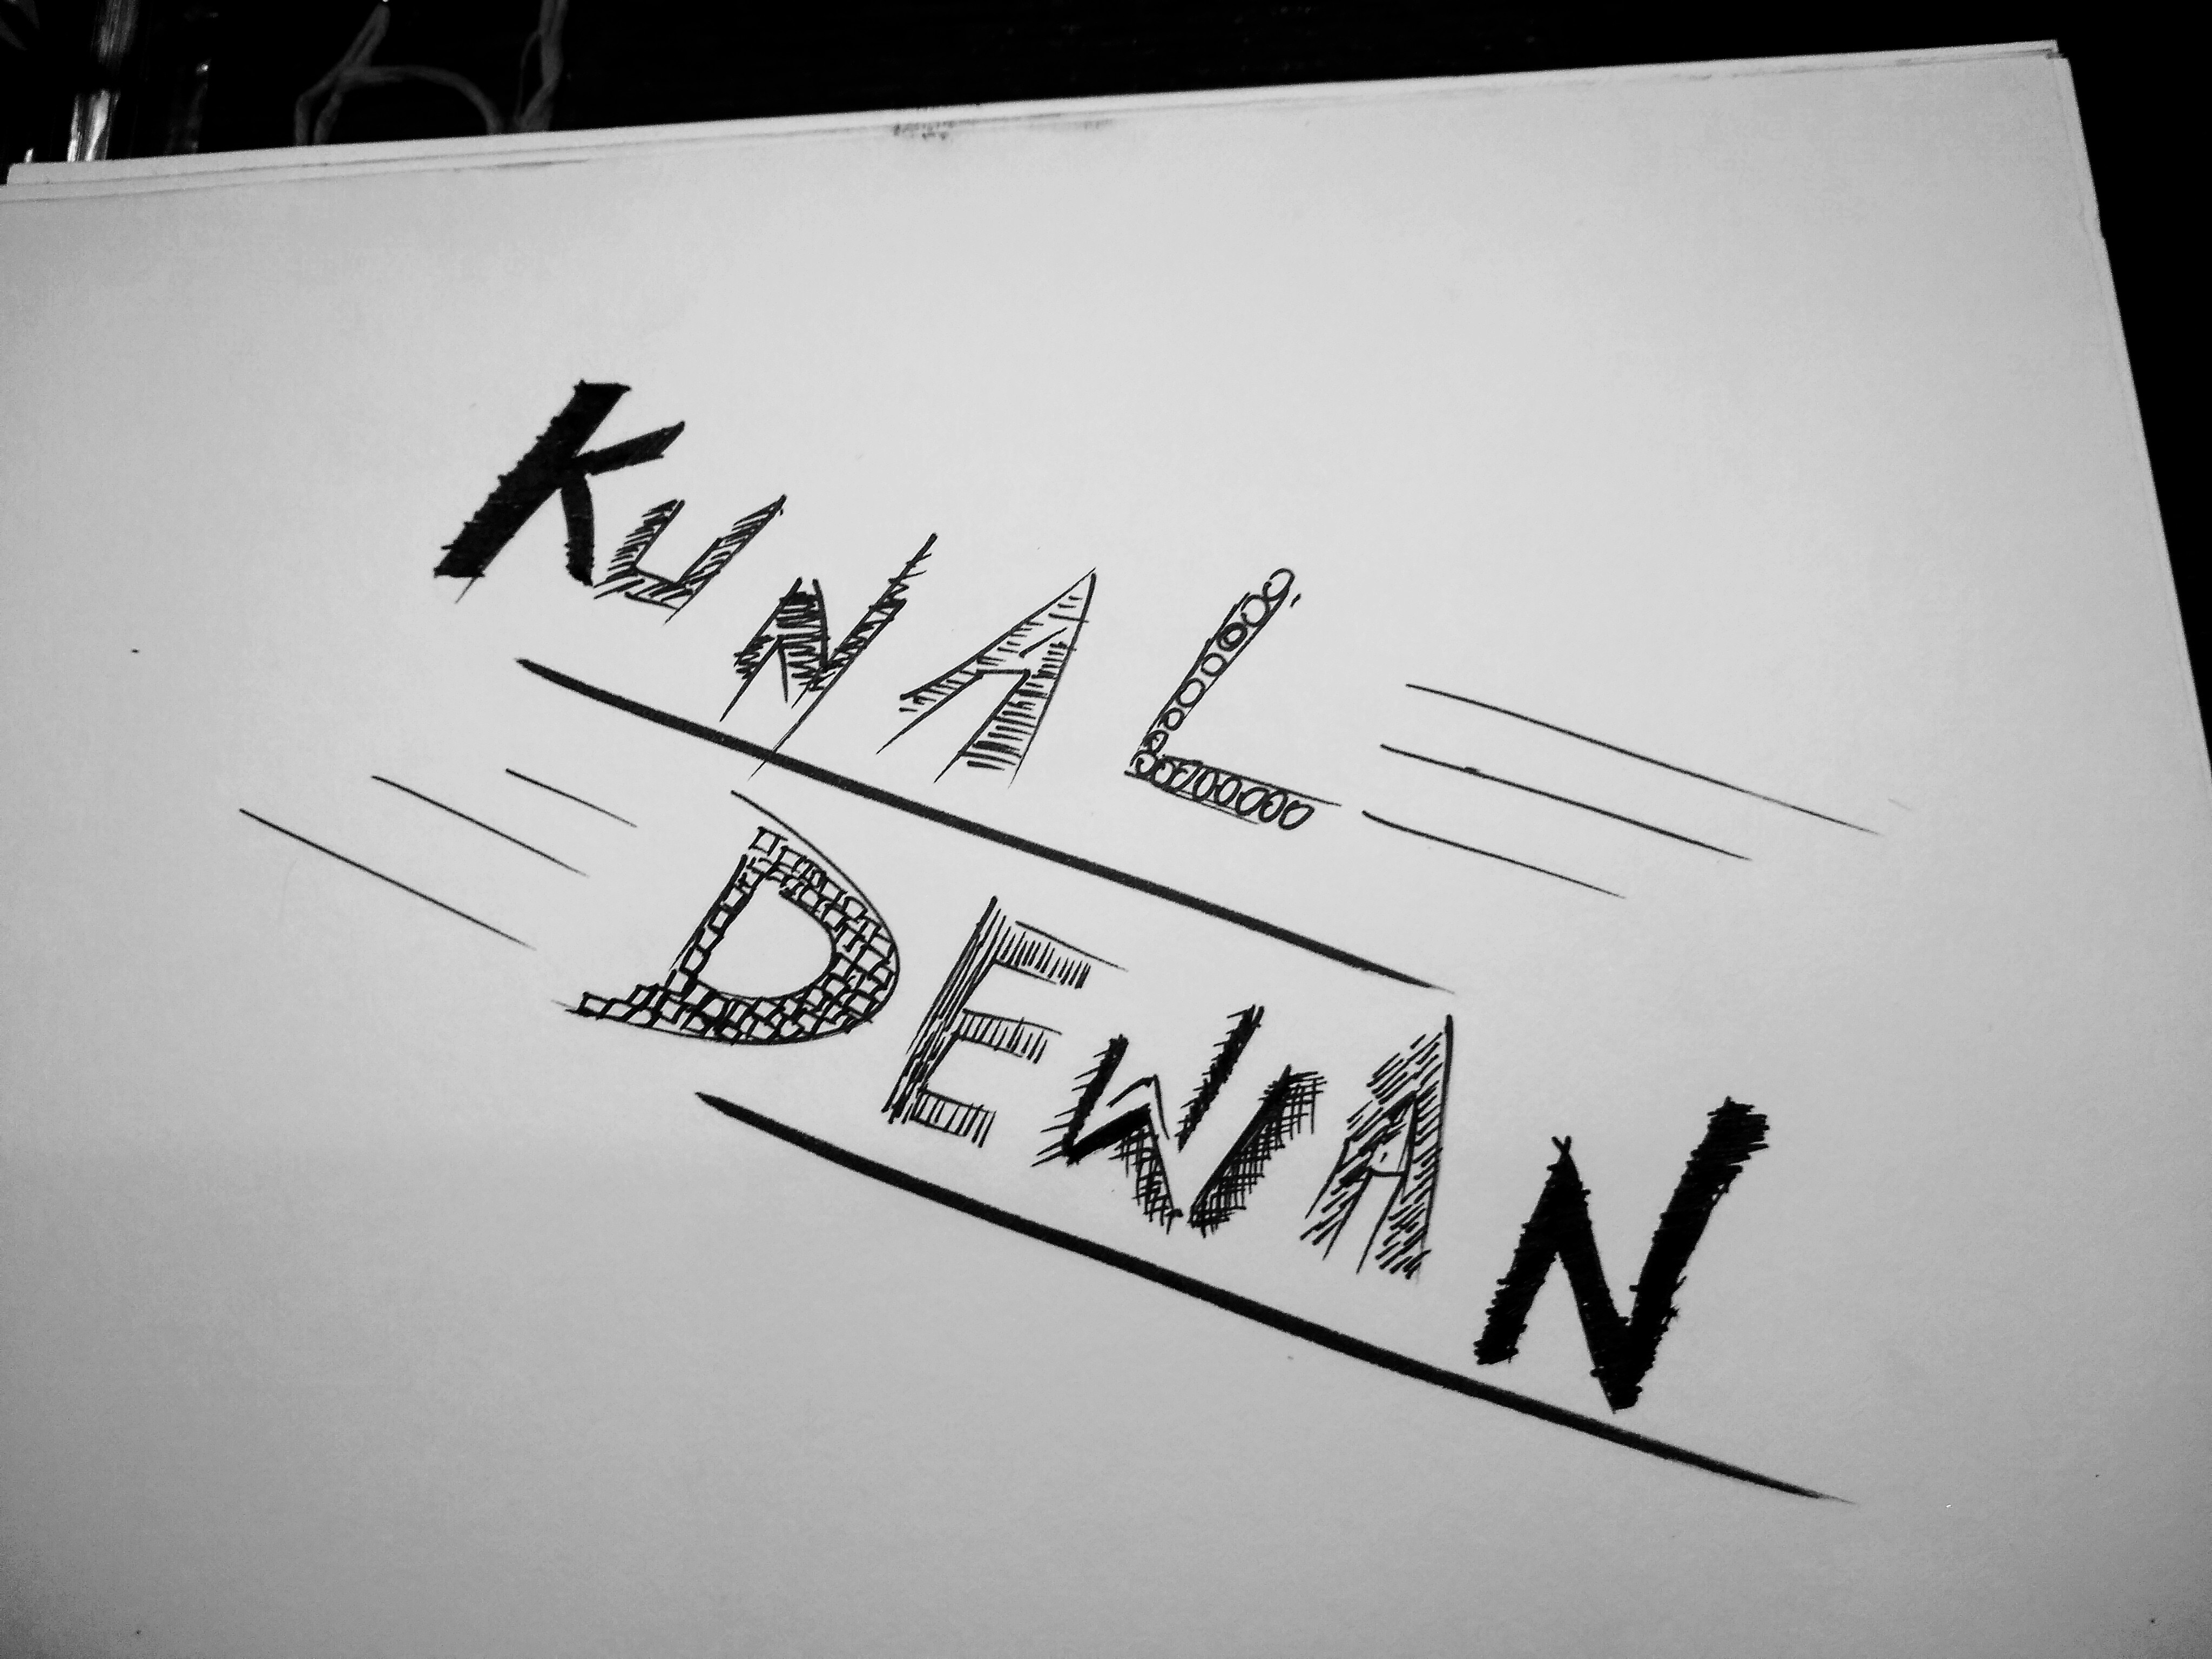 KUNAL
DEWAN